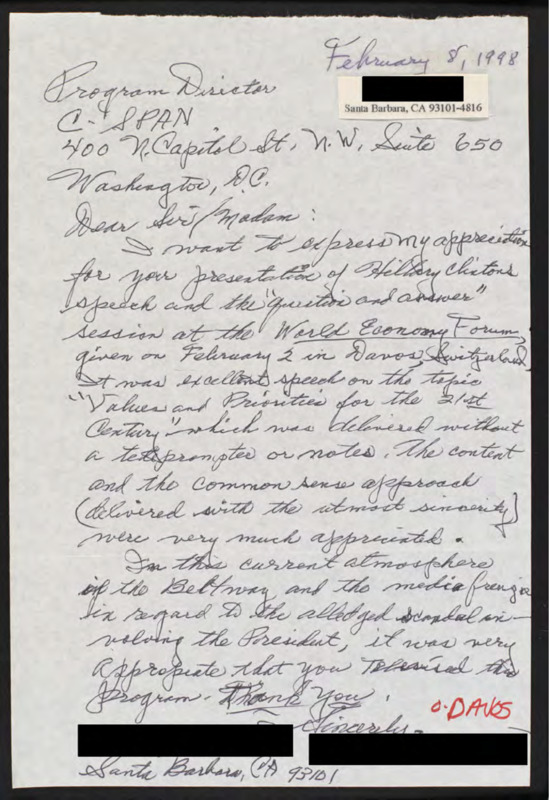 February 8, 1998
Santa Barbara, CA 93101-4816
Program Director
C-SPAN
400 N. Capitol St. N.W, Suite 650
Washington, D.C.
Dear Sir/Madam:
I want to express my appreciation
for your presentation of Hillary Clintons
speech and the "question and answer"
session at the World Economy Forum,
given on February 2 in Davos, Switzerland.
It was excellent speech on the topic
"Values and Priorities for the 21st
Century" which was delivered without
a teleprompter or notes. The content
and the common sense approach
(delivered with the utmost sincerity)
were very much appreciated.
In this current atmosphere
of the Beltway and the media
in regard to the alledged scandal in-
volving the President, it was very
appropiate that you televised this
program. Thank You.
O-DAVOS
Sincerely-
Santa Barbara, CA 93101